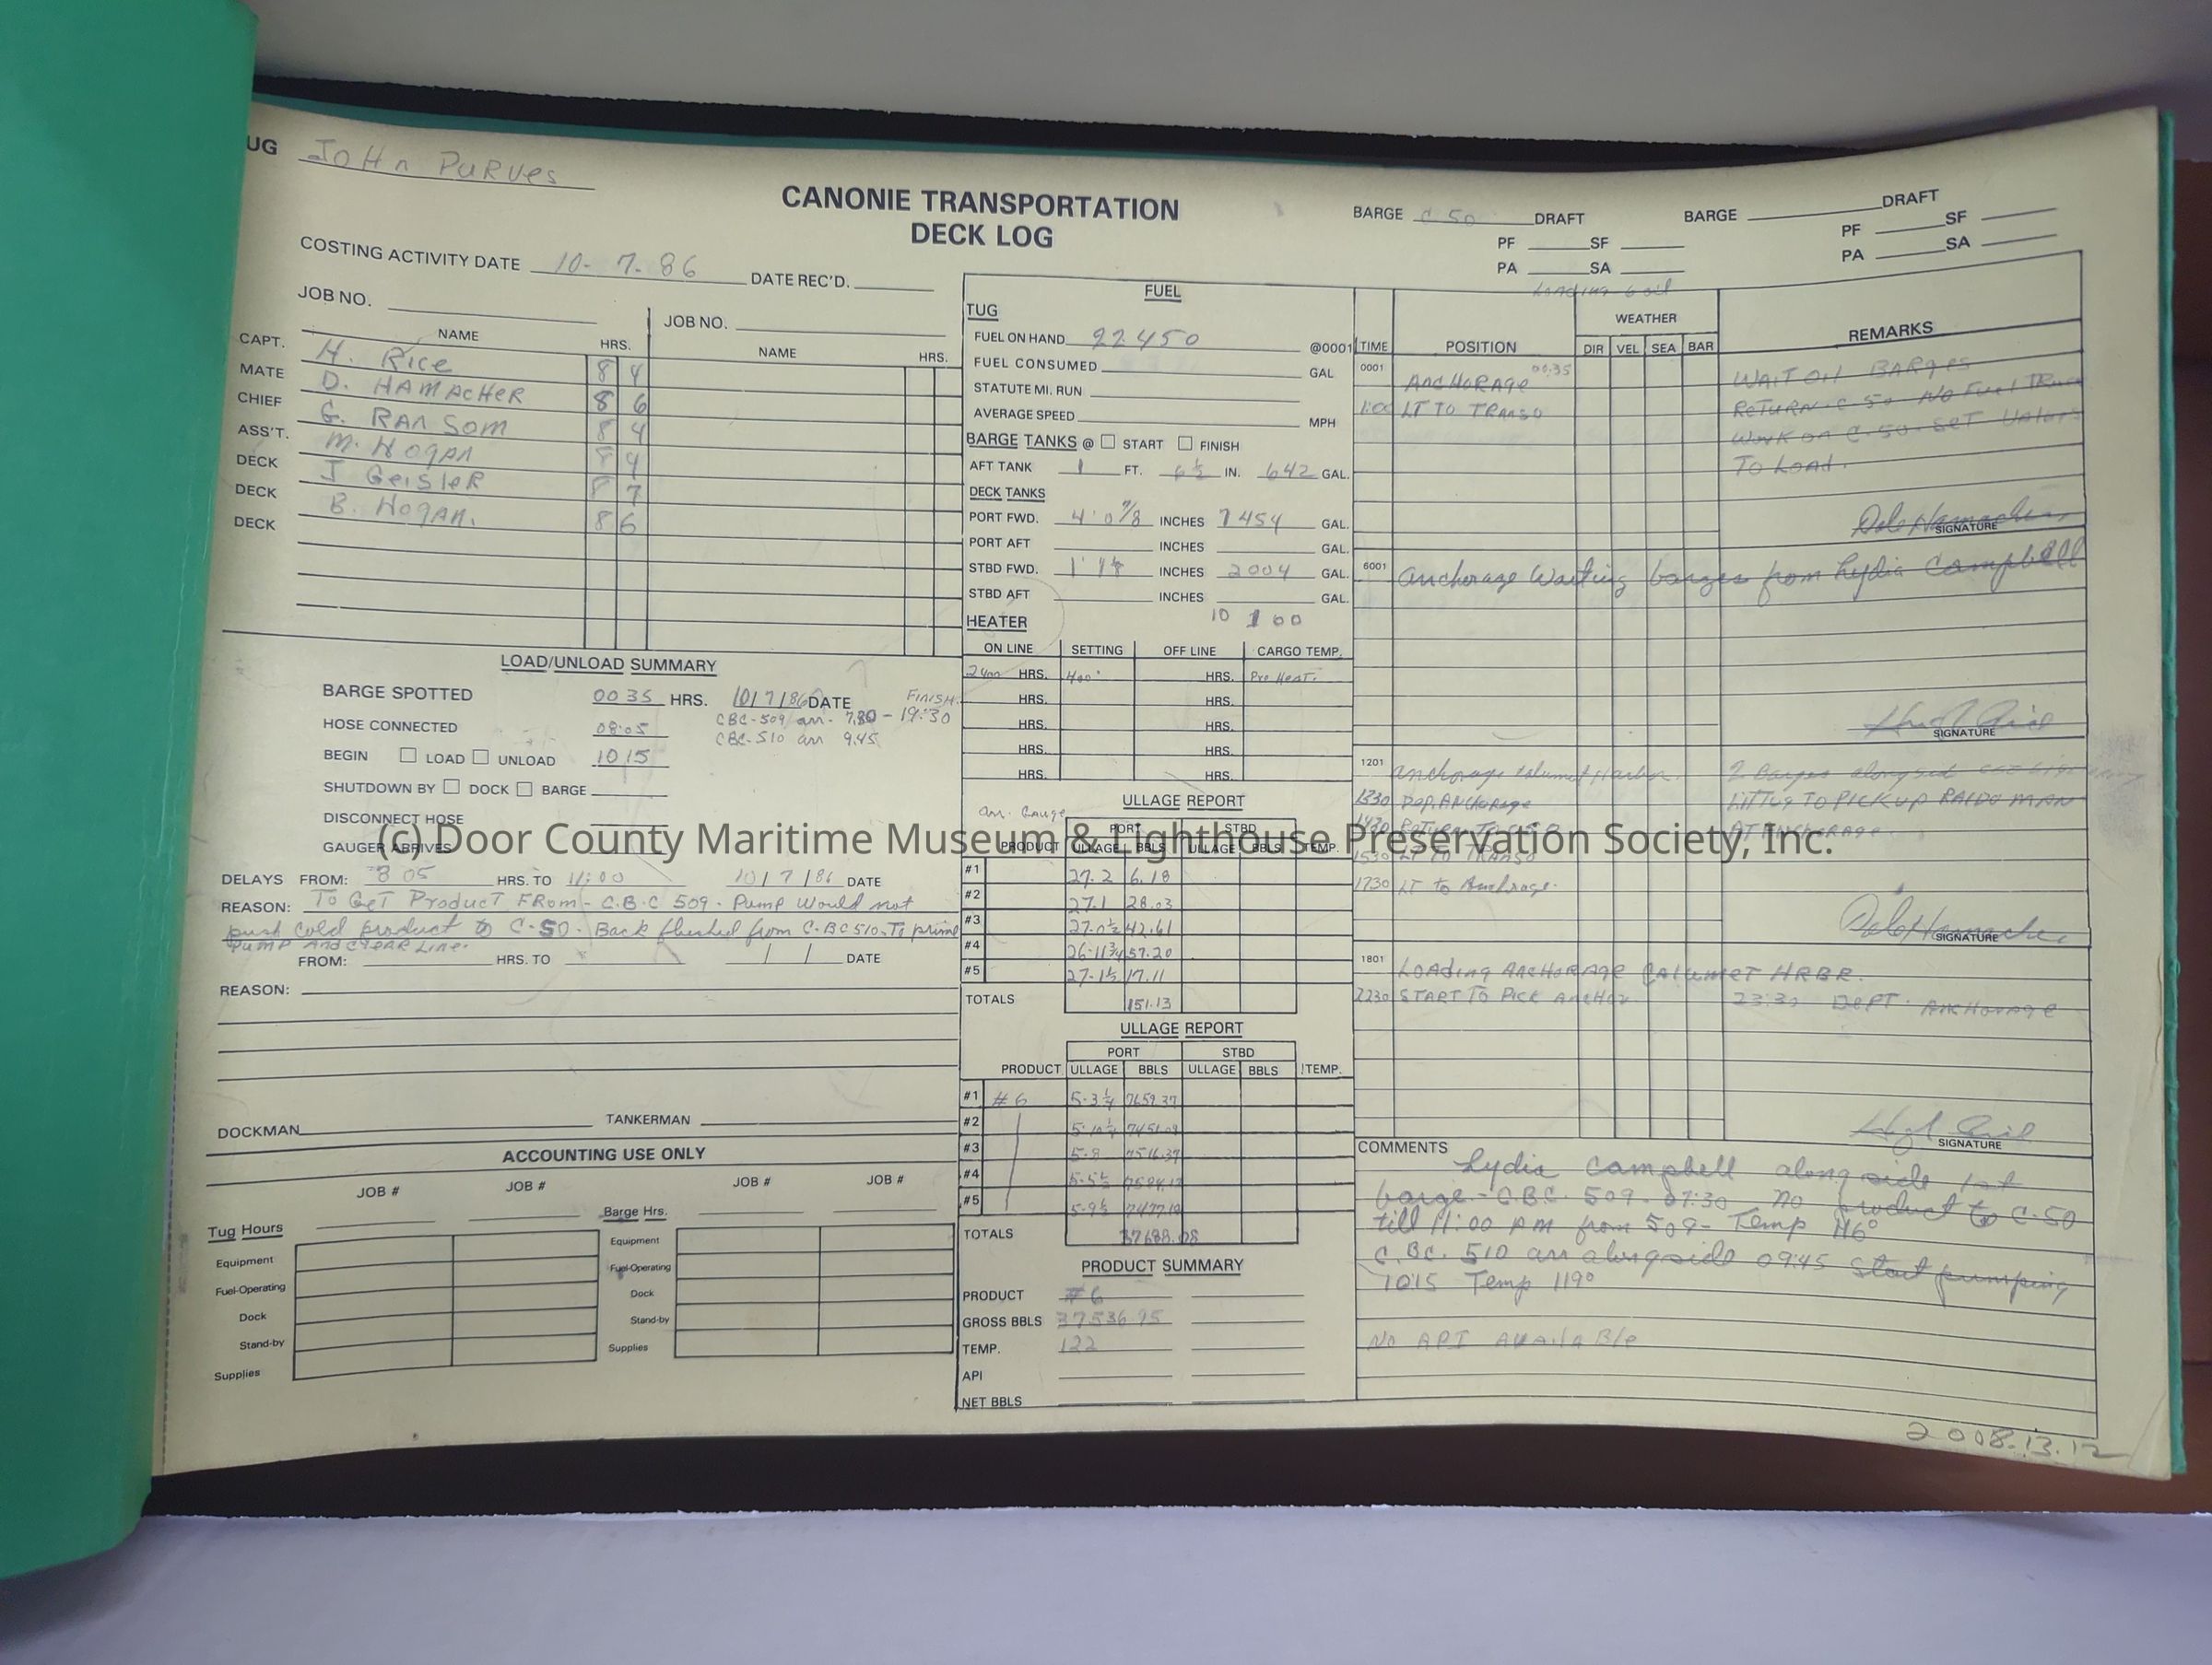 UG JOHn PURVes
CANONIE TRANSPORTATION
DECK LOG
COSTING ACTIVITY DATE 10-7-86 DATE REC'D.
JOB NO. JOB NO.
NAME HRS. NAME HRS.
CAPT. H. Rice 8 4
MATE D. HAMACHER 8 6
CHIEF G. RANSOM 8 4
ASS'T. M. HOGAN 8 4
DECK J GeisleR 8 7
DECK B. HOGAN. 8 6
DECK
LOAD/UNLOAD SUMMARY
BARGE SPOTTED 0035 HRS. 10/7/86 DATE FINISH.
CBC-509 arr. 7:30 - 19:30
HOSE CONNECTED 08:05
CBC-510 arr 9:45
BEGIN LOAD UNLOAD 1015
SHUTDOWN BY DOCK BARGE
DISCONNECT HOSE
GAUGER ARRIVES
DELAYS FROM: 8 05 HRS. TO 11:00 10/7/86 DATE
REASON: To GeT Product FRom - C.B.C 509 - Pump would not
push cold product to C-50. Back flushed from C.BC 510. To prime
Pump and clear line.
FROM: HRS. TO / / DATE
REASON:
DOCKMAN TANKERMAN
ACCOUNTING USE ONLY
JOB # JOB # JOB # JOB #
Tug Hours Barge Hrs.
Equipment Equipment
Fuel-Operating Fuel-Operating
Dock Dock
Stand-by Stand-by
Supplies Supplies
FUEL
TUG
FUEL ON HAND 22450 @0001
FUEL CONSUMED GAL
STATUTE MI. RUN
AVERAGE SPEED MPH
BARGE TANKS @ START FINISH
AFT TANK 1 FT. 6½ IN. 642 GAL.
DECK TANKS
PORT FWD. 4' 0 7/8 INCHES 7454 GAL.
PORT AFT INCHES GAL.
STBD FWD. INCHES 2004 GAL.
STBD AFT INCHES GAL.
HEATER 10 100
ON LINE SETTING OFF LINE CARGO TEMP.
24 HRS. 400° HRS. Pre Heat.
HRS. HRS.
HRS. HRS.
HRS. HRS.
HRS. HRS.
arr. Gauge ULLAGE REPORT
PORT STBD
PRODUCT ULLAGE BBLS ULLAGE BBLS TEMP.
#1 27.2 6.18
#2 27.1 28.03
#3 27.0½ 42.61
#4 26-11¾ 57.20
#5 27-1½ 17.11
TOTALS 151.13
ULLAGE REPORT
PORT STBD
PRODUCT ULLAGE BBLS ULLAGE BBLS TEMP.
#1 #6 5-3¼ 7659.37
#2 5-10¼ 7451.09
#3 5-8 7516.37
#4 5-5½ 7584.17
#5 5-9½ 7477.10
TOTALS 37688.08
PRODUCT SUMMARY
PRODUCT #6
GROSS BBLS 37536.95
TEMP. 122
API
NET BBLS
BARGE C 50 DRAFT BARGE DRAFT
PF SF PF SF
PA SA PA SA
Loading 6 oil
TIME POSITION WEATHER REMARKS
DIR VEL SEA BAR
0001 ANCHORAGE 00:35 WAIT ON BARGES
1:00 LT TO TRANSO RETURN C-50 No Fuel TRuck
Work on C-50. Set Valves
To Load.
Dale Hamacher
SIGNATURE
6001 anchorage Waiting barges from Lydia Campbell
Hugh Rice
SIGNATURE
1201 anchorage Calumet Harbor. 2 Barges alongside
1330 Dep. Anchorage LiTTug TO PICK UP RAIDO MAN
1430 Return To C50 AT ANCHORAGE.
1530 LT TO TRANSO
1730 LT to Anchrage.
Dale Hamacher
SIGNATURE
1801 LOADING ANCHORAGE CALUMET HRBR.
2230 START TO PICK ANCHOR 23:30 DEPT. ANCHORAGE
Hugh Rice
SIGNATURE
COMMENTS Lydia Campbell along side 1st
barge - C.B.C. 509 - 07:30 no product to C-50
till 11:00 AM from 509 - Temp 116°
C.BC. 510 arr alongside 09:45 start pumping
1015 Temp 119°
No API AVAilABle
2008.13.12
(c) Door County Maritime Museum & Lighthouse Preservation Society, Inc.